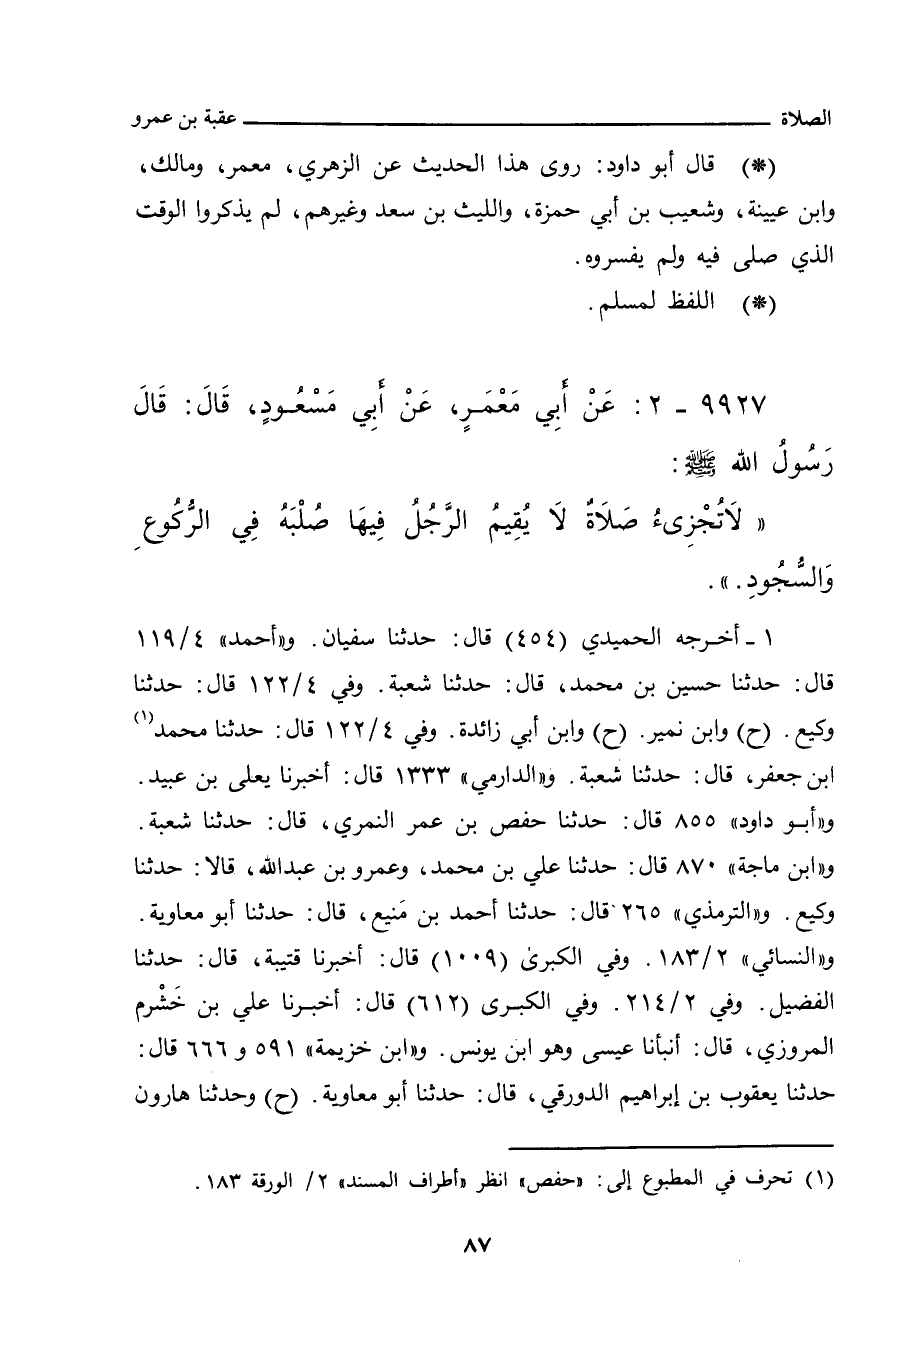 الصلاة ــــــــــــــــــــــــــــــــ عقبة بن عمرو
(*) قال أبو داود: روى هذا الحديث عن الزهري، معمر، ومالك،
وابن عيينة، وشعيب بن أبي حمزة، والليث بن سعد وغيرهم، لم يذكروا الوقت
الذي صلى فيه ولم يفسروه.
(*) اللفظ لمسلم.
٩٩٢٧ - ٢: عَنْ أَبِي مَعْمَرٍ، عَنْ أَبِي مَسْعُودٍ، قَالَ: قَالَ
رَسُولُ الله ﷺ:
« لَاتُجْزِىءُ صَلَاةٌ لَا يُقِيمُ الرَّجُلُ فِيهَا صُلْبَهُ فِي الرُّكُوعِ
وَالسُّجُودِ.».
١ - أخرجه الحميدي (٤٥٤) قال: حدثنا سفيان. و«أحمد» ٤/١١٩
قال: حدثنا حسين بن محمد، قال: حدثنا شعبة. وفي ٤/١٢٢ قال: حدثنا
وكيع. (ح) وابن نمير. (ح) وابن أبي زائدة. وفي ٤/١٢٢ قال: حدثنا محمد(١)
ابن جعفر، قال: حدثنا شعبة. و«الدارمي» ١٣٣٣ قال: أخبرنا يعلى بن عبيد.
و«أبو داود» ٨٥٥ قال: حدثنا حفص بن عمر النمري، قال: حدثنا شعبة.
و«ابن ماجة» ٨٧٠ قال: حدثنا علي بن محمد، وعمرو بن عبدالله، قالا: حدثنا
وكيع. و«الترمذي» ٢٦٥ قال: حدثنا أحمد بن مَنيع، قال: حدثنا أبو معاوية.
و«النسائي» ٢/١٨٣. وفي الكبرىٰ (١٠٠٩) قال: أخبرنا قتيبة، قال: حدثنا
الفضيل. وفي ٢/٢١٤. وفي الكبرى (٦١٢) قال: أخبرنا علي بن خَشْرم
المروزي، قال: أنبأنا عيسى وهو ابن يونس. و«ابن خزيمة» ٥٩١ و ٦٦٦ قال:
حدثنا يعقوب بن إبراهيم الدورقي، قال: حدثنا أبو معاوية. (ح) وحدثنا هارون
(١) تحرف في المطبوع إلى: «حفص» انظر «أطراف المسند» ٢/ الورقة ١٨٣.
٨٧